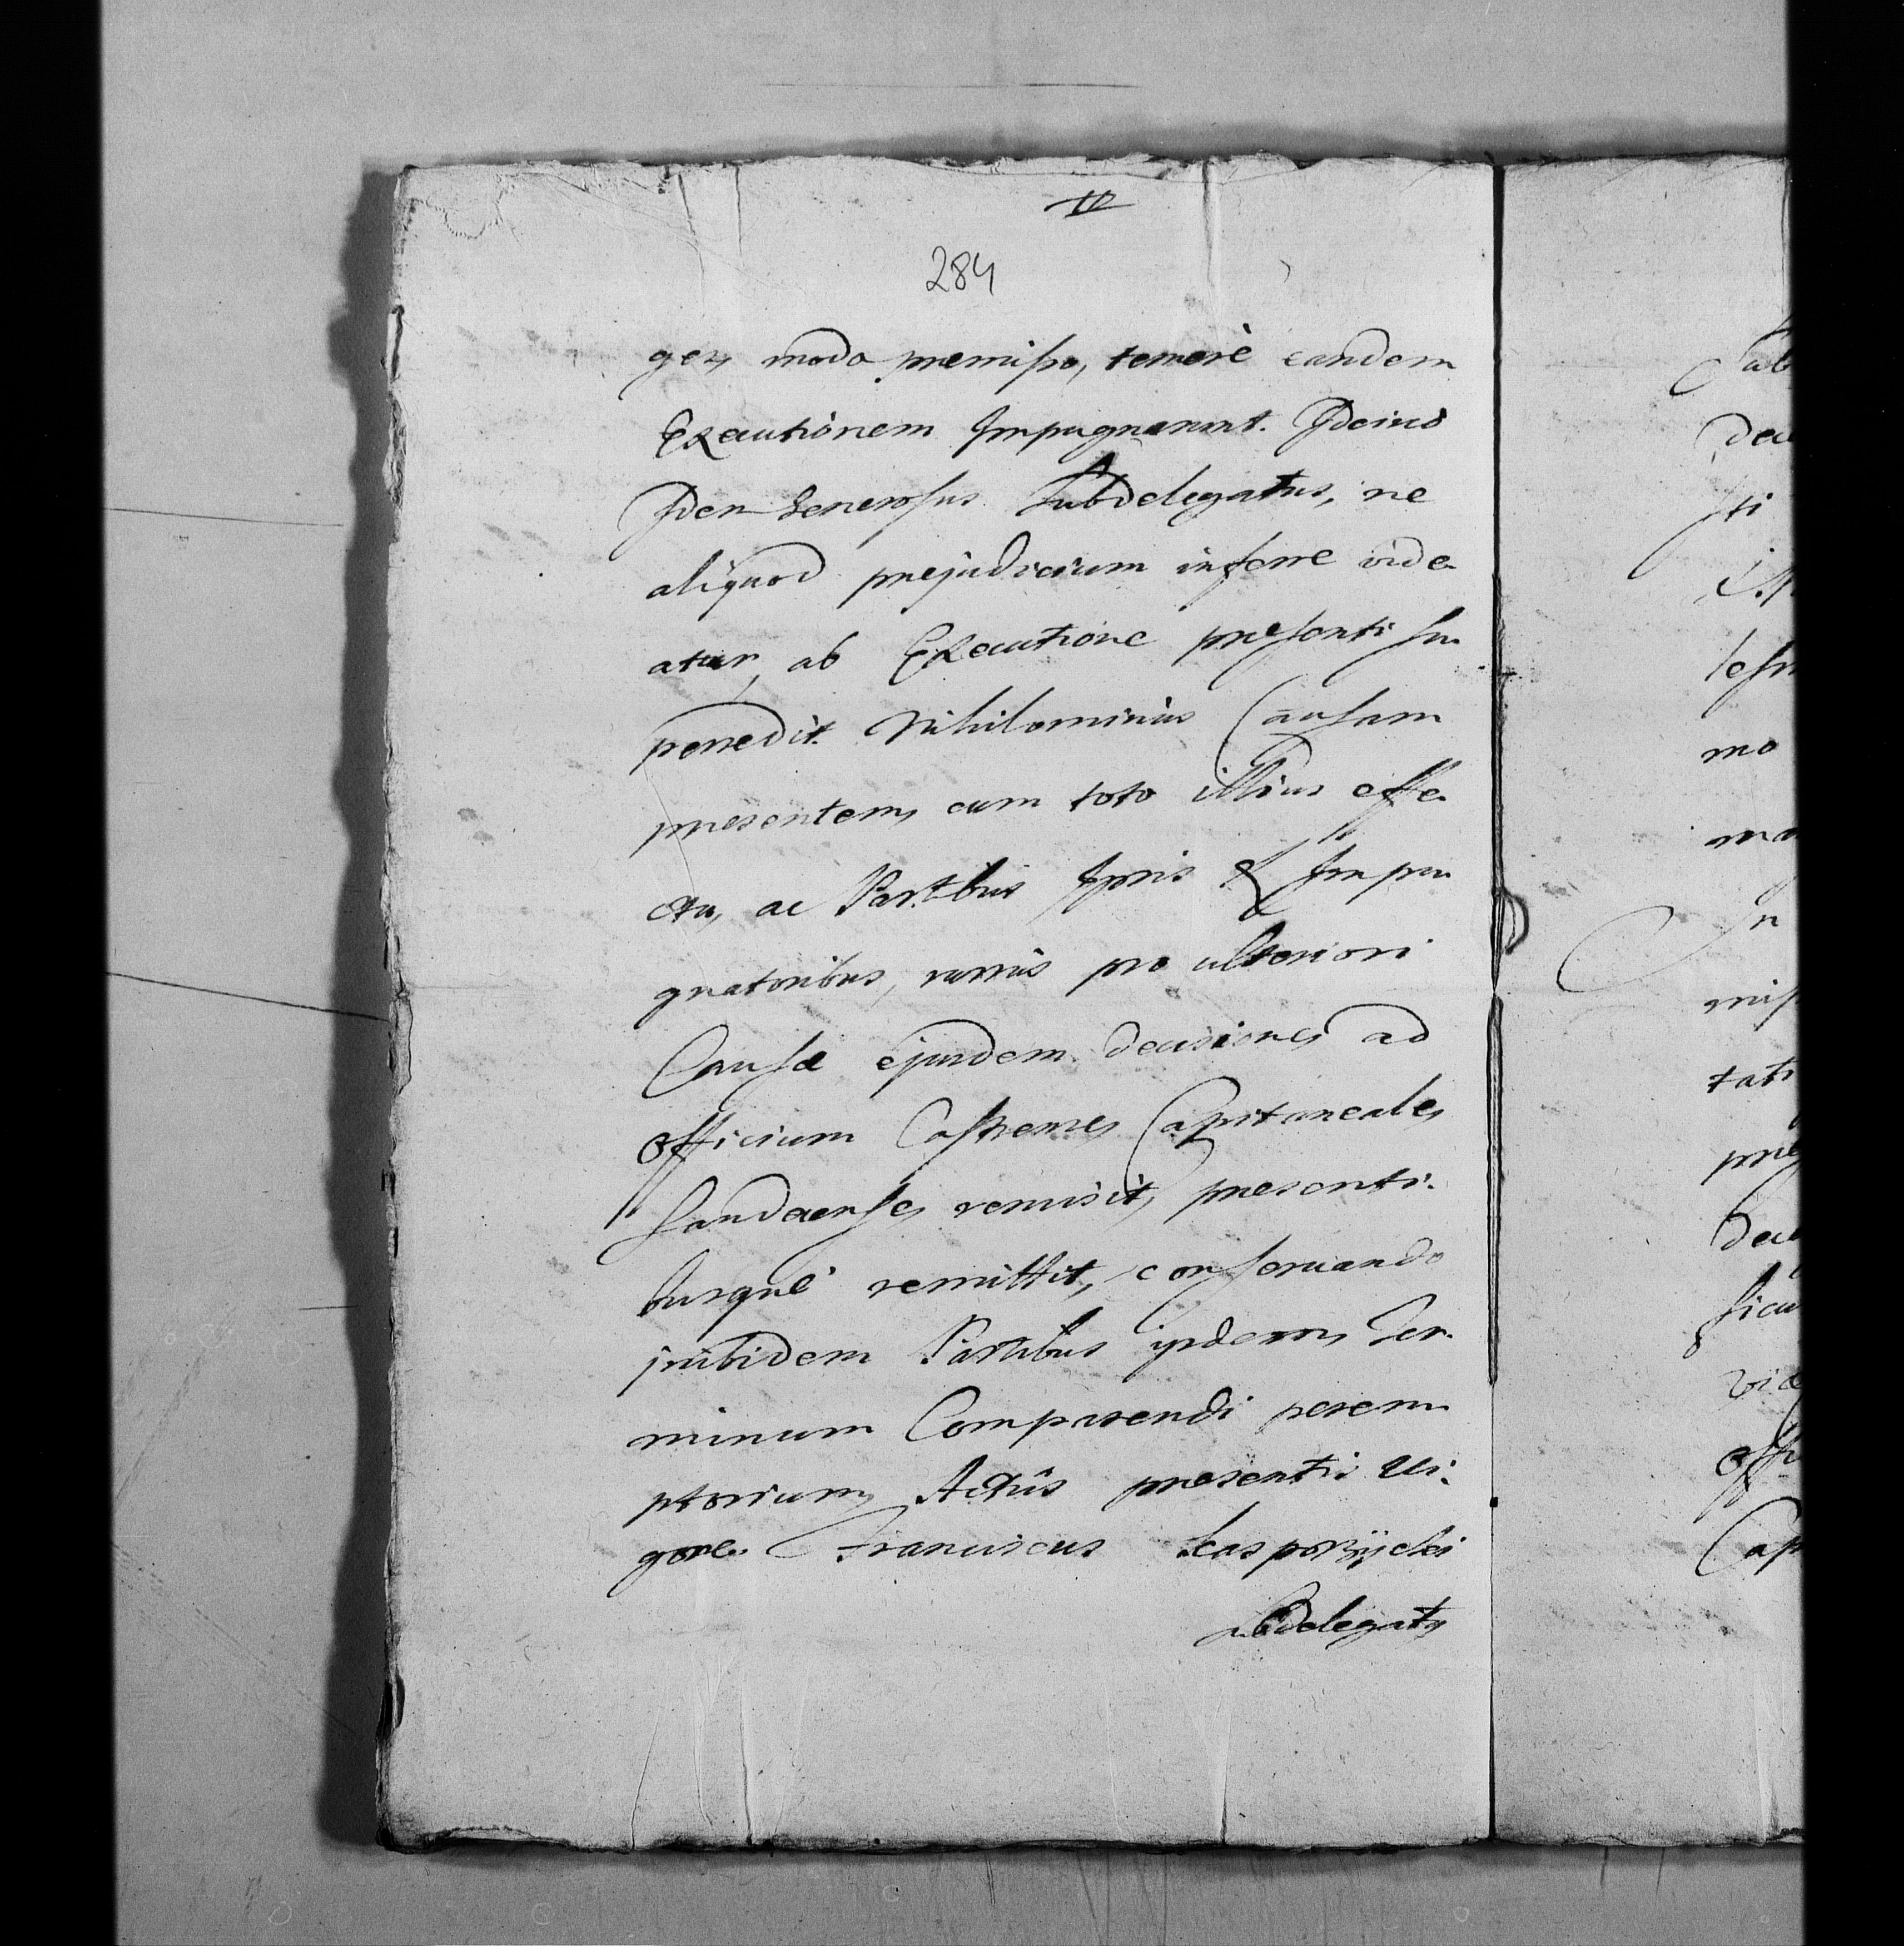 284
ges, modo premisso, temerè eandem
Executionem Impugnarunt. Ideino
Idem Generosus Subdelegatus, ne
aliquod prejudicium inferre vide-
atur, ab Executione presenti su-
persedit. Nihilominus Causam
presentem, cum toto illius effe-
ctu, ac Partibus Ipsis & Impu-
gnatoribus, rursus pro ulteriori
Causæ ejusdem decisione, ad
officium Castrense, Capitaneale,
Sandecense, remisit, presenti-
busque remittit, conservando
inibidem Partibus ijsdem, Ter-
minum Comparendi perem-
ptorium, Actûs presentis vi-
gore. Franciscus
Subdelegatus
Sub